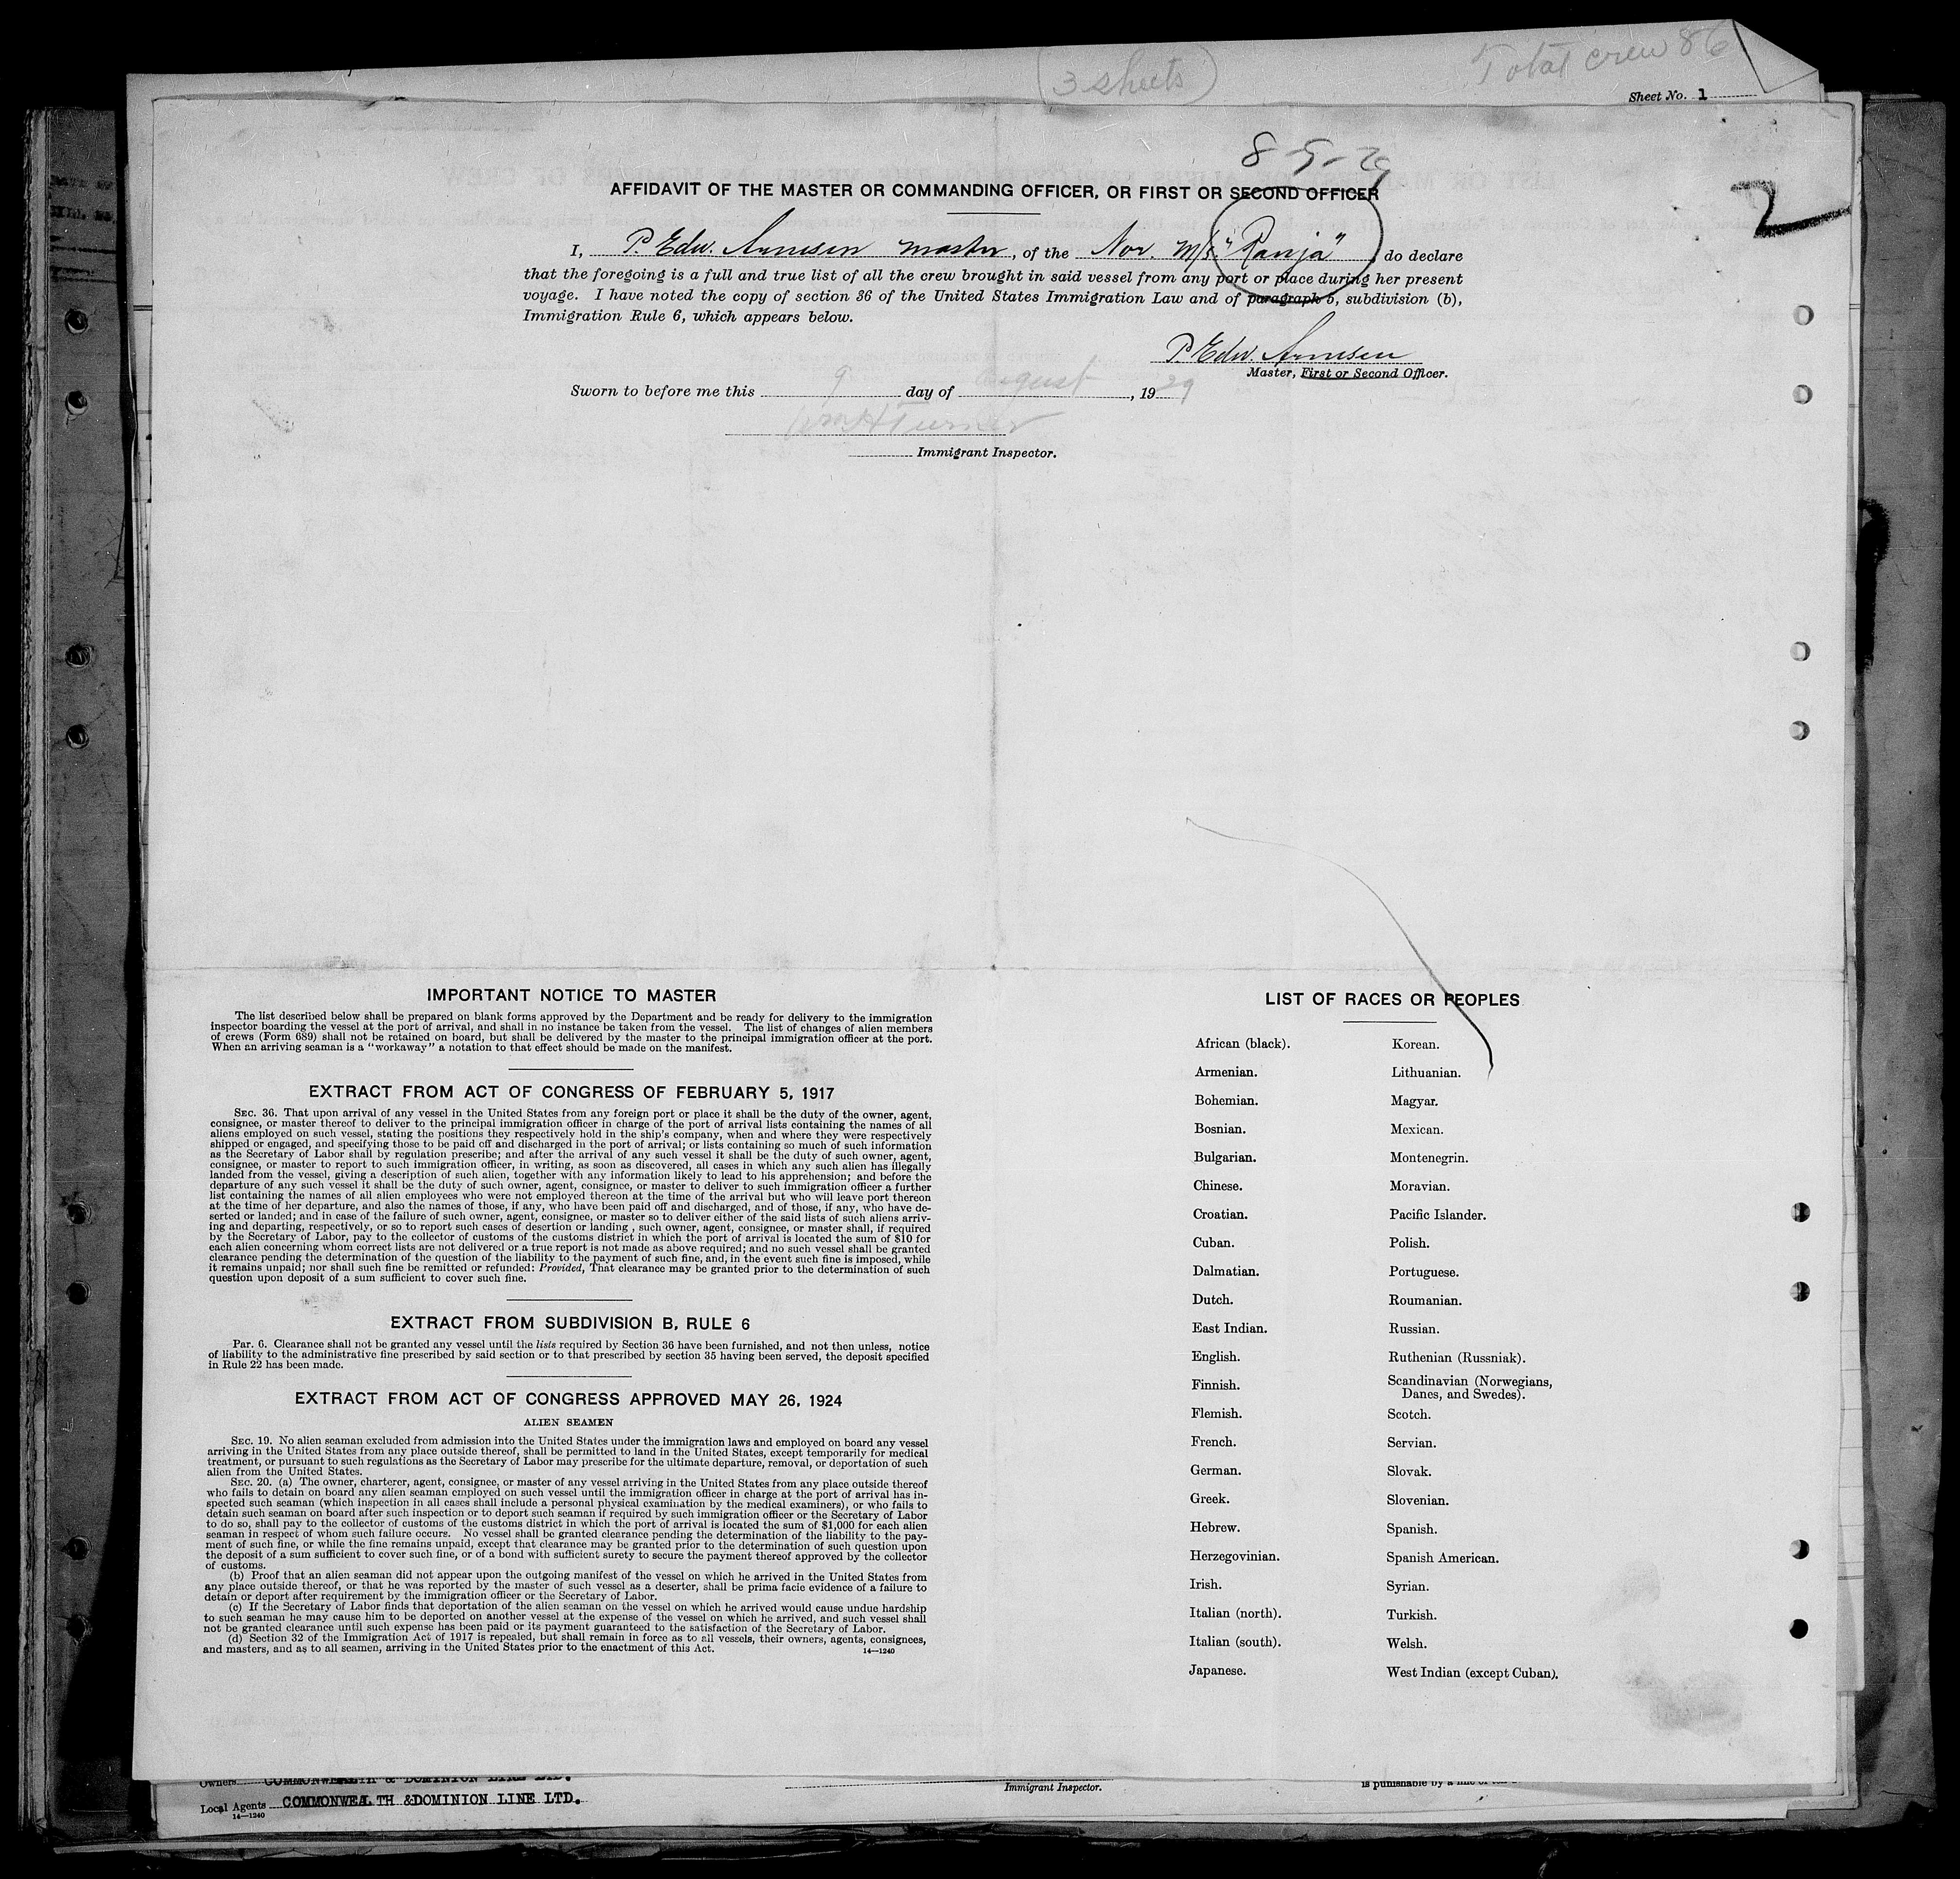 Total crew 86
(3 sheets)
Sheet No. 1
8-9-29
2
AFFIDAVIT OF THE MASTER OR COMMANDING OFFICER, OR FIRST OR SECOND OFFICER
I, P. Edw. Arnesen master, of the Nor. M/S. "Ranja", do declare
that the foregoing is a full and true list of all the crew brought in said vessel from any port or place during her present
voyage. I have noted the copy of section 36 of the United States Immigration Law and of paragraph 5, subdivision (b),
Immigration Rule 6, which appears below.
P. Edw. Arnesen
Master, First or Second Officer.
Sworn to before me this 9 day of August, 1929
Wm H Turner
Immigrant Inspector.
IMPORTANT NOTICE TO MASTER
The list described below shall be prepared on blank forms approved by the Department and be ready for delivery to the immigration
inspector boarding the vessel at the port of arrival, and shall in no instance be taken from the vessel. The list of changes of alien members
of crews (Form 689) shall not be retained on board, but shall be delivered by the master to the principal immigration officer at the port.
When an arriving seaman is a "workaway" a notation to that effect should be made on the manifest.
EXTRACT FROM ACT OF CONGRESS OF FEBRUARY 5, 1917
SEC. 36. That upon arrival of any vessel in the United States from any foreign port or place it shall be the duty of the owner, agent,
consignee, or master thereof to deliver to the principal immigration officer in charge of the port of arrival lists containing the names of all
aliens employed on such vessel, stating the positions they respectively hold in the ship's company, when and where they were respectively
shipped or engaged, and specifying those to be paid off and discharged in the port of arrival; or lists containing so much of such information
as the Secretary of Labor shall by regulation prescribe; and after the arrival of any such vessel it shall be the duty of such owner, agent,
consignee, or master to report to such immigration officer, in writing, as soon as discovered, all cases in which any such alien has illegally
landed from the vessel, giving a description of such alien, together with any information likely to lead to his apprehension; and before the
departure of any such vessel it shall be the duty of such owner, agent, consignee, or master to deliver to such immigration officer a further
list containing the names of all alien employees who were not employed thereon at the time of the arrival but who will leave port thereon
at the time of her departure, and also the names of those, if any, who have been paid off and discharged, and of those, if any, who have de-
serted or landed; and in case of the failure of such owner, agent, consignee, or master so to deliver either of the said lists of such aliens arriv-
ing and departing, respectively, or so to report such cases of desertion or landing , such owner, agent, consignee, or master shall, if required
by the Secretary of Labor, pay to the collector of customs of the customs district in which the port of arrival is located the sum of $10 for
each alien concerning whom correct lists are not delivered or a true report is not made as above required; and no such vessel shall be granted
clearance pending the determination of the question of the liability to the payment of such fine, and, in the event such fine is imposed, while
it remains unpaid; nor shall such fine be remitted or refunded: Provided, That clearance may be granted prior to the determination of such
question upon deposit of a sum sufficient to cover such fine.
EXTRACT FROM SUBDIVISION B, RULE 6
Par. 6. Clearance shall not be granted any vessel until the lists required by Section 36 have been furnished, and not then unless, notice
of liability to the administrative fine prescribed by said section or to that prescribed by section 35 having been served, the deposit specified
in Rule 22 has been made.
EXTRACT FROM ACT OF CONGRESS APPROVED MAY 26, 1924
ALIEN SEAMEN
SEC. 19. No alien seaman excluded from admission into the United States under the immigration laws and employed on board any vessel
arriving in the United States from any place outside thereof, shall be permitted to land in the United States, except temporarily for medical
treatment, or pursuant to such regulations as the Secretary of Labor may prescribe for the ultimate departure, removal, or deportation of such
alien from the United States.
SEC. 20. (a) The owner, charterer, agent, consignee, or master of any vessel arriving in the United States from any place outside thereof
who fails to detain on board any alien seaman employed on such vessel until the immigration officer in charge at the port of arrival has in-
spected such seaman (which inspection in all cases shall include a personal physical examination by the medical examiners), or who fails to
detain such seaman on board after such inspection or to deport such seaman if required by such immigration officer or the Secretary of Labor
to do so, shall pay to the collector of customs of the customs district in which the port of arrival is located the sum of $1,000 for each alien
seaman in respect of whom such failure occurs. No vessel shall be granted clearance pending the determination of the liability to the pay-
ment of such fine, or while the fine remains unpaid, except that clearance may be granted prior to the determination of such question upon
the deposit of a sum sufficient to cover such fine, or of a bond with sufficient surety to secure the payment thereof approved by the collector
of customs.
(b) Proof that an alien seaman did not appear upon the outgoing manifest of the vessel on which he arrived in the United States from
any place outside thereof, or that he was reported by the master of such vessel as a deserter, shall be prima facie evidence of a failure to
detain or deport after requirement by the immigration officer or the Secretary of Labor.
(c) If the Secretary of Labor finds that deportation of the alien seaman on the vessel on which he arrived would cause undue hardship
to such seaman he may cause him to be deported on another vessel at the expense of the vessel on which he arrived, and such vessel shall
not be granted clearance until such expense has been paid or its payment guaranteed to the satisfaction of the Secretary of Labor.
(d) Section 32 of the Immigration Act of 1917 is repealed, but shall remain in force as to all vessels, their owners, agents, consignees,
and masters, and as to all seamen, arriving in the United States prior to the enactment of this Act.
14—1240
LIST OF RACES OR PEOPLES
African (black).
Armenian.
Bohemian.
Bosnian.
Bulgarian.
Chinese.
Croatian.
Cuban.
Dalmatian.
Dutch.
East Indian.
English.
Finnish.
Flemish.
French.
German.
Greek.
Hebrew.
Herzegovinian.
Irish.
Italian (north).
Italian (south).
Japanese.
Korean.
Lithuanian.
Magyar.
Mexican.
Montenegrin.
Moravian.
Pacific Islander.
Polish.
Portuguese.
Roumanian.
Russian.
Ruthenian (Russniak).
Scandinavian (Norwegians,
Danes, and Swedes).
Scotch.
Servian.
Slovak.
Slovenian.
Spanish.
Spanish American.
Syrian.
Turkish.
Welsh.
West Indian (except Cuban).
Owners COMMONWEALTH & DOMINION LINE LTD.
Local Agents COMMONWEALTH &DOMINION LINE LTD.
14—1240
Immigrant Inspector.
is punishable by a fine of